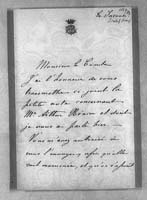 Monsieur le Comte
J'ai l'honneur de vous
transmettre ci-joint la
petite note concernant
Mr Arthur dont
je vous ai parlé hier.
Vous m'avez autorisé à
vous l'envoyer, afin qu'elle
soit et qu'